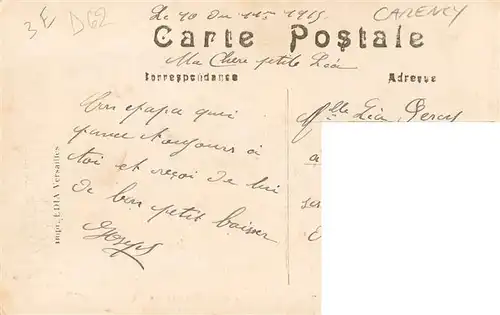 3€ D62
Le 10 du 1915
CARENCY
Carte Postale
Ma Chere ptite Léa
Correspondance
Adresse
Ton epapa qui
panse toujours a
toi et reçoi de lui
de bon petit baiser
Joseph
Mlle Léa
a
ser
E
imp. EDIA Versailles